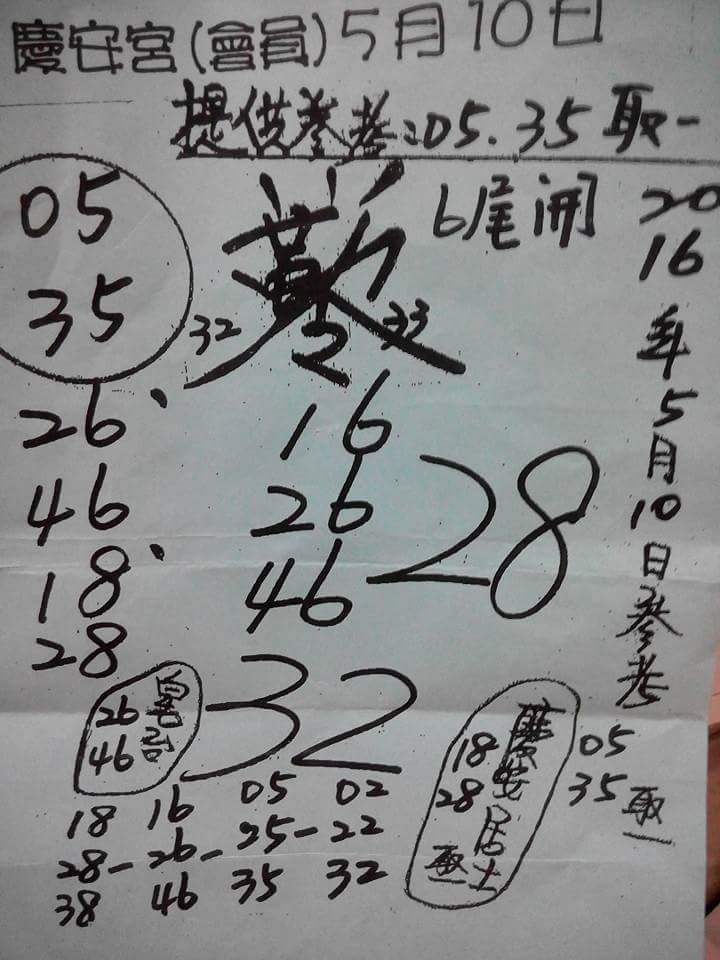 慶安宮(會員)5月10日
提供參考:05.35取一
05
35
6尾開
32 2 33
2016年5月10日參考
26
46
18
28
16
26
46
28
32
26
46
慶安居士
18
28
取一
05
35
取一
18 16 05 02
28-26-25-22
38 46 35 32